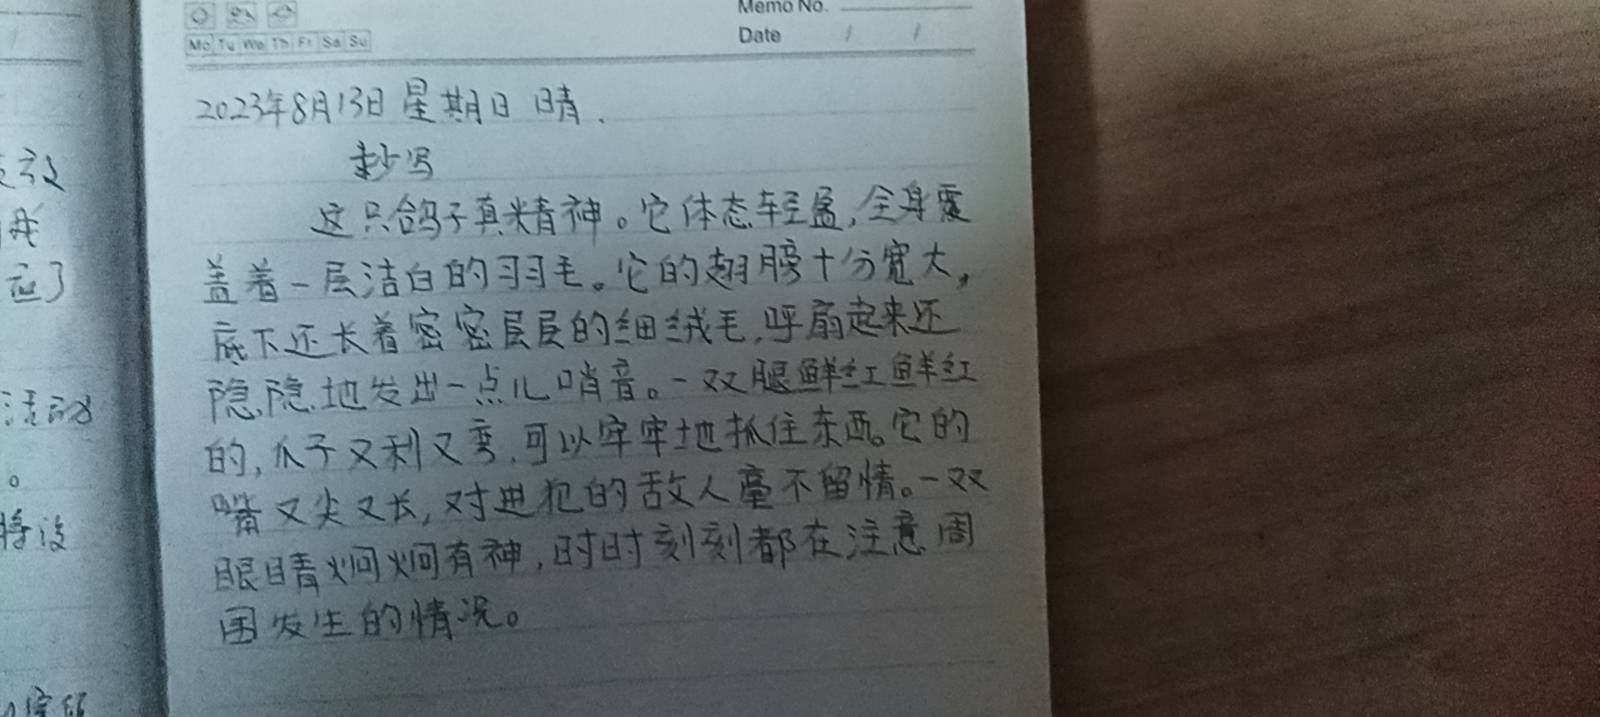 Memo No.
Mo Tu We Th Fr Sa Su
Date / /
2023年8月13日 星期日 晴.
抄写
这只鸽子真精神。它体态轻盈,全身覆
盖着一层洁白的羽毛。它的翅膀十分宽大,
底下还长着密密层层的细绒毛,呼扇起来还
隐隐地发出一点儿哨音。一双腿鲜红鲜红
的,爪子又利又弯,可以牢牢地抓住东西。它的
嘴又尖又长,对进犯的敌人毫不留情。一双
眼睛炯炯有神,时时刻刻都在注意周
围发生的情况。
应了
活动
。
将没